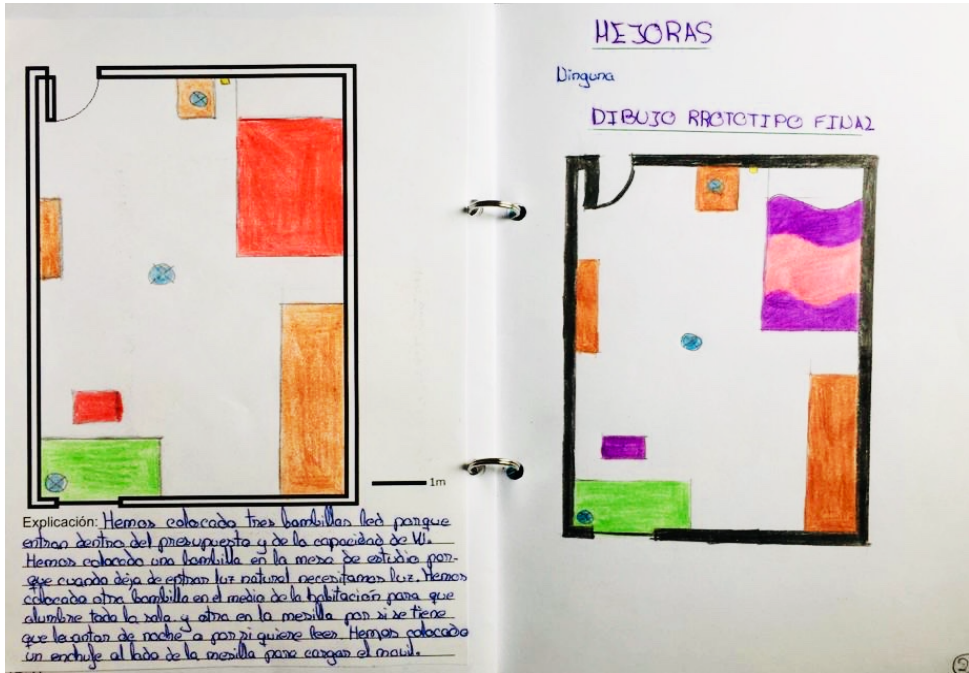 1m
Explicación: Hemos colocado tres bombillas led porque
entran dentro del presupuesto y de la capacidad de W.
Hemos colocado una bombilla en la mesa de estudio por-
que cuando deja de entrar luz natural necesitamos luz. Hemos
colocado otra bombilla en el medio de la habitación para que
alumbre toda la sala. y otra en la mesilla por si se tiene
que levantar de noche o por si quiere leer. Hemos colocado
un enchufe al lado de la mesilla para cargar el movil.
MEJORAS
Ninguna
DIBUJO RROTOTIPO FINAL